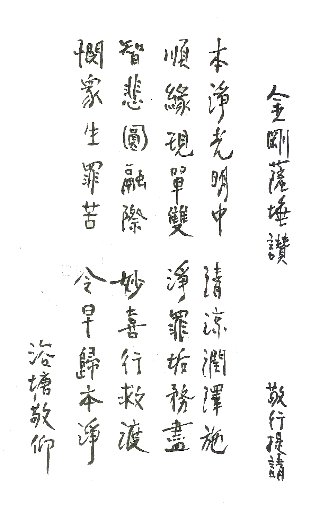 金剛薩埵讚　敬行提請
本淨光明中　清涼潤澤施
順緣現單雙　淨罪垢務盡
智悲圓融際　妙喜行救渡
憫眾生罪苦　令早歸本淨
浴塘敬仰